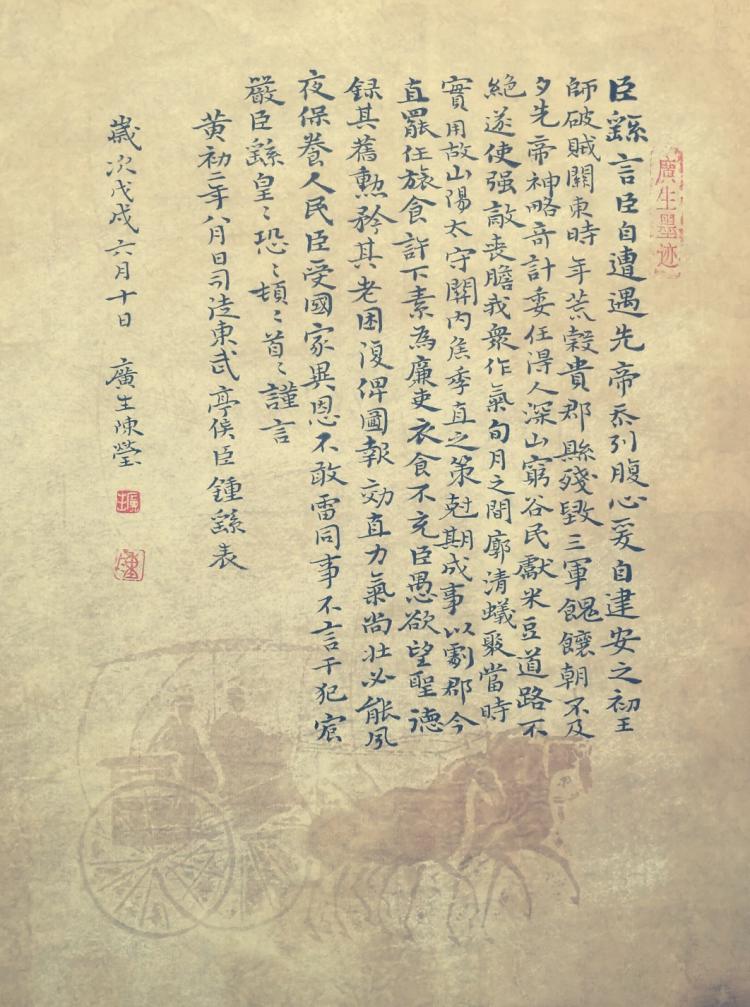 廣生墨迹
臣繇言臣自遭遇先帝忝列腹心爰自建安之初王
師破賊關東時年荒穀貴郡縣殘毀三軍餽饟朝不及
夕先帝神略奇計委任得人深山窮谷民獻米豆道路不
絶遂使强敵喪膽我衆作氣旬月之間廓清蟻聚當時
實用故山陽太守關内侯季直之策尅期成事以劇郡今
直罷任旅食許下素為廉吏衣食不充臣愚欲望聖德
録其舊勲矜其老困復俾圖報効直力氣尚壯必能夙
夜保養人民臣受國家異恩不敢雷同事不言干犯宸
嚴臣繇皇〻恐〻頓〻首〻謹言
黃初二年八月日司徒東武亭侯臣鍾繇表
歲次戊戌六月十日 廣生陳瑩
廣生